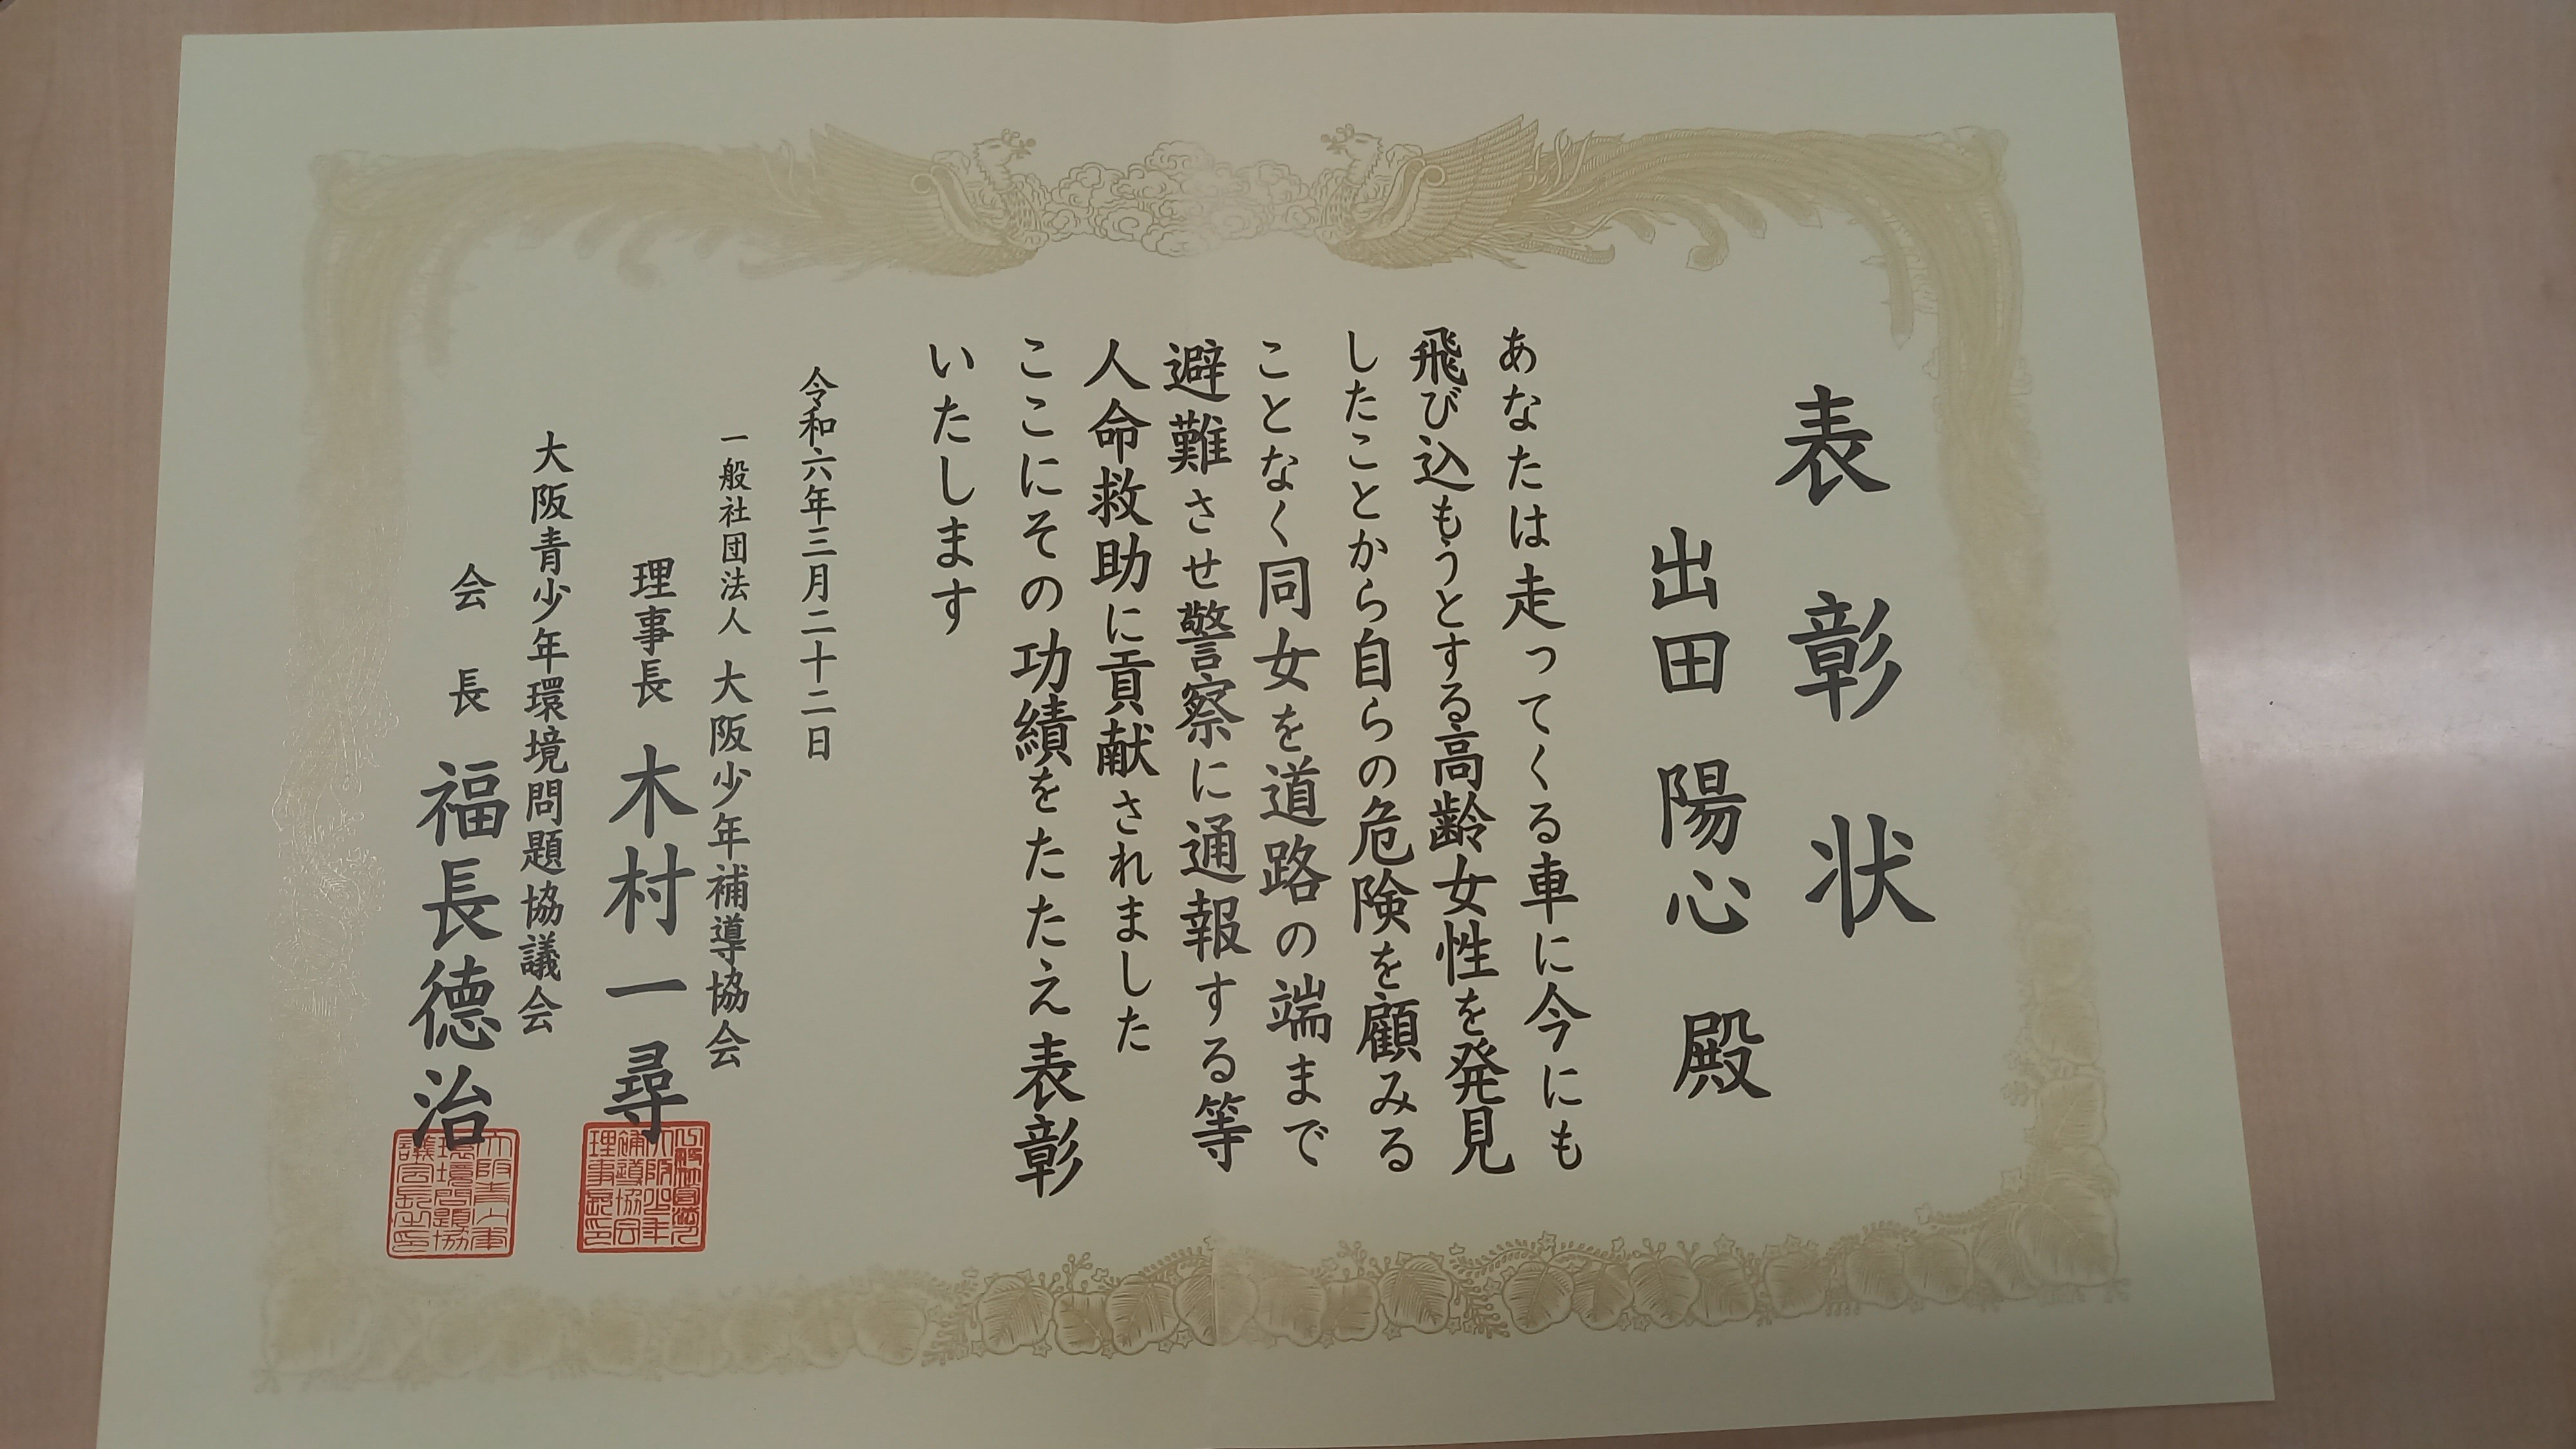 表彰状
出田 陽心 殿
あなたは走ってくる車に今にも
飛び込もうとする高齢女性を発見
したことから自らの危険を顧みる
ことなく同女を道路の端まで
避難させ警察に通報する等
人命救助に貢献されました
ここにその功績をたたえ表彰
いたします
令和六年三月二十二日
一般社団法人 大阪少年補導協会
理事長 木村一尋
大阪青少年環境問題協議会
会長 福長徳治